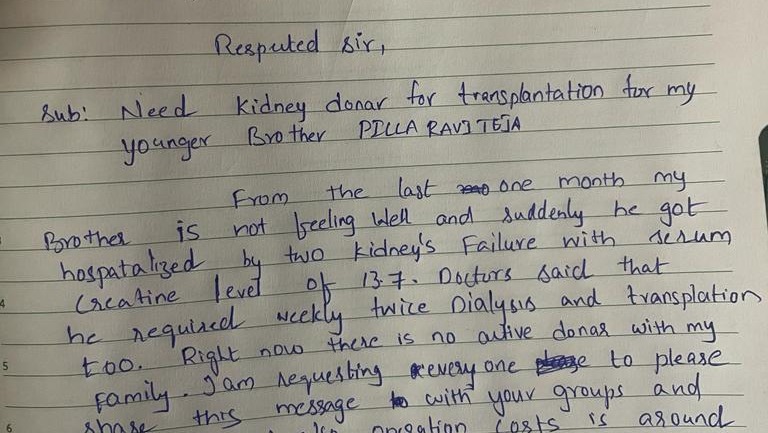 Resputed sir,
Sub: Need kidney donar for transplantation for my
younger Brother PILLA RAVI TEJA
From the last one month my
Brother is not feeling well and suddenly he got
hospatalized by two kidney's Failure with serum
Creatine level of 13.7. Doctors said that
he required weekly twice Dialysis and transplation
too. Right now there is no active donar with my
family. I am requesting every one to please
share this message with your groups and
operation costs is around
4
5
6